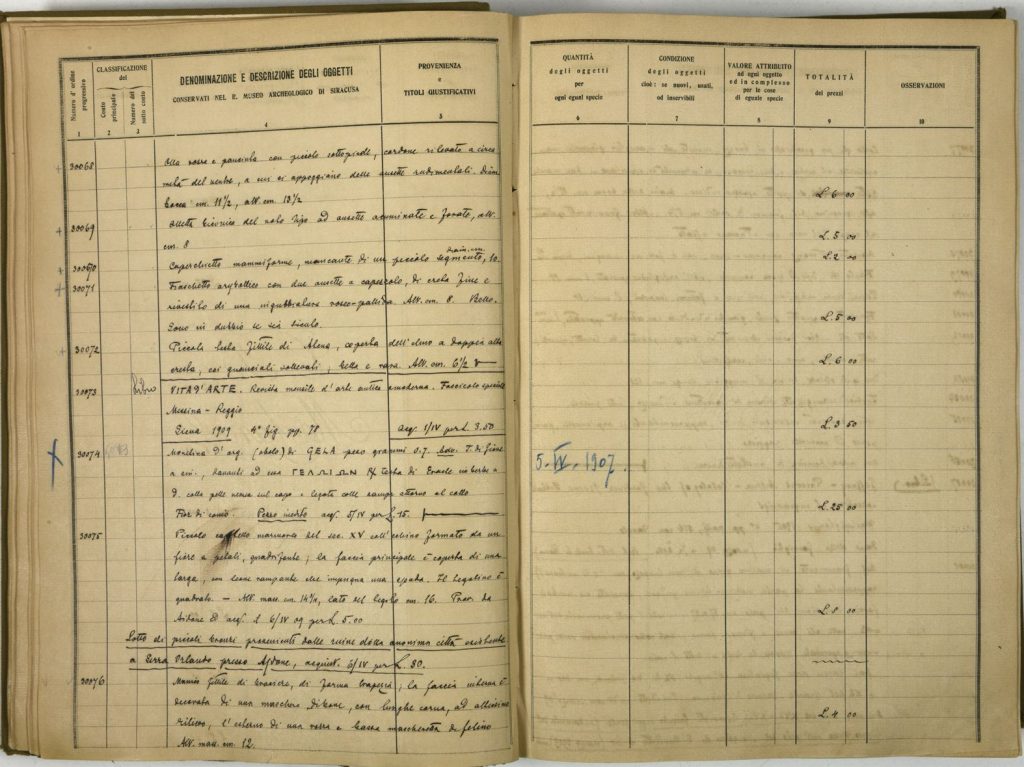 Numero d'ordine progressivo
CLASSIFICAZIONE del
Conto principale
Numero del sotto conto
DENOMINAZIONE E DESCRIZIONE DEGLI OGGETTI
CONSERVATI NEL R. MUSEO ARCHEOLOGICO DI SIRACUSA
PROVENIENZA
e
TITOLI GIUSTIFICATIVI
QUANTITÀ
degli oggetti
per
ogni egual specie
CONDIZIONE
degli oggetti
cioè: se nuovi, usati,
od inservibili
VALORE ATTRIBUITO
ad ogni oggetto
ed in complesso
per le cose
di eguale specie
TOTALITÀ
dei prezzi
OSSERVAZIONI
1 2 3 4 5 6 7 8 9 10
30068 Olla rossa e panciuta con piccolo sottopiede, cordone rilevato a circa
metà del ventre, a cui si appoggiano delle ansette rudimentali. Diam.
bocca cm. 11½, alt. cm. 13½ L. 6 00
30069 Olletta biconica del noto tipo ad ansette acuminate e forate, alt.
cm. 8 L. 5 00
30070 Coperchietto mammiforme, mancante di un piccolo segmento, diam. cm. 10 L. 2 00
30071 Fiaschetto con due ansette a capezzolo, di creta fine e
rivestito di una ingubbiatura roseo-pallida. Alt. cm. 8. Bello.
Sono in dubbio se sia siculo. L. 5 00
30072 Piccola testa fittile di Atena, coperta dell'elmo a doppia alta
cresta, coi guanciali sollevati, bella e rara Alt. cm. 6½ L. 6 00
30073 Libro VITA D'ARTE. Rivista mensile d'arte antica e moderna. Fascicolo speciale
Messina - Reggio
Siena 1909 4° fig. pp. 78 acq. 1/IV per L. 3.50 L. 3 50
30074 Monetina d'arg. (obolo) di GELA peso grammi 0.7. T. di fiume
a sin., davanti ad essa ΓΕΛΩΙΩΝ R/ testa di Eracle imberbe a
d. colla pelle nemea sul capo e legata colle zampe attorno al collo
Fior di conio. Pezzo inedito acq. 5/IV per L. 15. 5.IV.1907. L. 25 00
30075 Piccolo marmoreo del sec. XV coll' formato da un
fiore a petali, quadrifonte, la faccia principale è coperta di una
targa, con leone rampante che impugna una spada. Il
quadrato. — Alt. mass. cm. 14½, lato del cm. 16. Prov. da
Aidone ed acq. il 6/IV 09 per L. 5.00 L. 8 00
Lotto di piccoli bronzi provenienti dalle ruine della anonima città esistente
a Serra Orlando presso Aidone, acquist. 6/IV per L. 30.
30076 Manico fittile di braciere, di forma trapezia; la faccia interna è
decorata di una maschera, con lunghe corna, ad altissimo
rilievo, l'esterno di una rozza e bassa mascheretta di felino
Alt. mass. cm. 12. L. 4 00